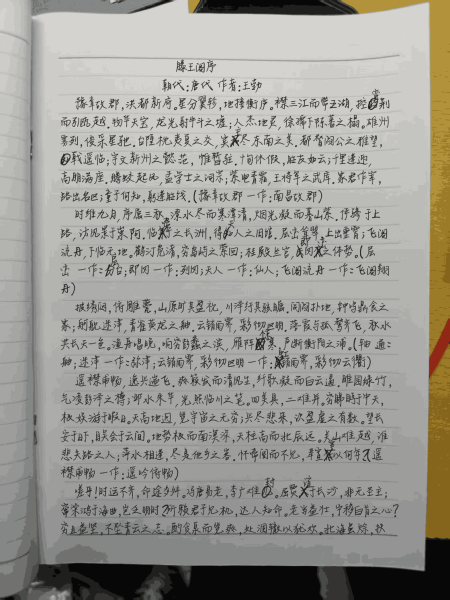 滕王阁序
朝代:唐代 作者:王勃
豫章故郡,洪都新府。星分翼轸,地接衡庐。襟三江而带五湖,控蛮荆
而引瓯越。物华天宝,龙光射牛斗之墟;人杰地灵,徐孺下陈蕃之榻。雄州
雾列,俊采星驰。台隍枕夷夏之交,宾主尽东南之美。都督阎公之雅望,
戟遥临;宇文新州之懿范,襜帷暂驻。十旬休假,胜友如云;千里逢迎,
高朋满座。腾蛟起凤,孟学士之词宗;紫电青霜,王将军之武库。家君作宰,
路出名区;童子何知,躬逢胜饯。(豫章故郡 一作:南昌故郡)
时维九月,序属三秋。潦水尽而寒潭清,烟光凝而暮山紫。俨骖于上
路,访风景于崇阿。临帝子之长洲,得人之旧馆。层峦耸翠,上出重霄;飞阁
流丹,下临无地。鹤汀凫渚,穷岛屿之萦回;桂殿兰宫,即冈之体势。(层
峦 一作:台;即冈 一作:列冈;天人 一作:仙人;飞阁流丹 一作:飞阁翔
丹)
披绣闼,俯雕甍,山原旷其盈视,川泽纡其骇瞩。闾阎扑地,钟鸣鼎食之
家;舸舰迷津,青雀黄龙之舳。云销雨霁,彩彻区明。落霞与孤鹜齐飞,秋水
共长天一色。渔舟唱晚,响穷彭蠡之滨,雁阵惊寒,声断衡阳之浦。(轴 通:
舳;迷津 一作:弥津;云销雨霁,彩彻区明 一作:虹销雨霁,彩彻云衢)
遥襟甫畅,逸兴遄飞。爽籁发而清风生,纤歌凝而白云遏。睢园绿竹,
气凌彭泽之樽;邺水朱华,光照临川之笔。四美具,二难并。穷睇眄于中天,
极娱游于暇日。天高地迥,觉宇宙之无穷;兴尽悲来,识盈虚之有数。望长
安于日下,目吴会于云间。地势极而南溟深,天柱高而北辰远。关山难越,谁
悲失路之人;萍水相逢,尽是他乡之客。怀帝阍而不见,奉宣室以何年?(遥
襟甫畅 一作:遥吟俯畅)
嗟乎!时运不齐,命途多舛。冯唐易老,李广难封。屈贾谊于长沙,非无圣主;
窜梁鸿于海曲,岂乏明时?所赖君子见机,达人知命。老当益壮,宁移白首之心?
穷且益坚,不坠青云之志。酌贪泉而觉爽,处涸辙以犹欢。北海虽赊,扶